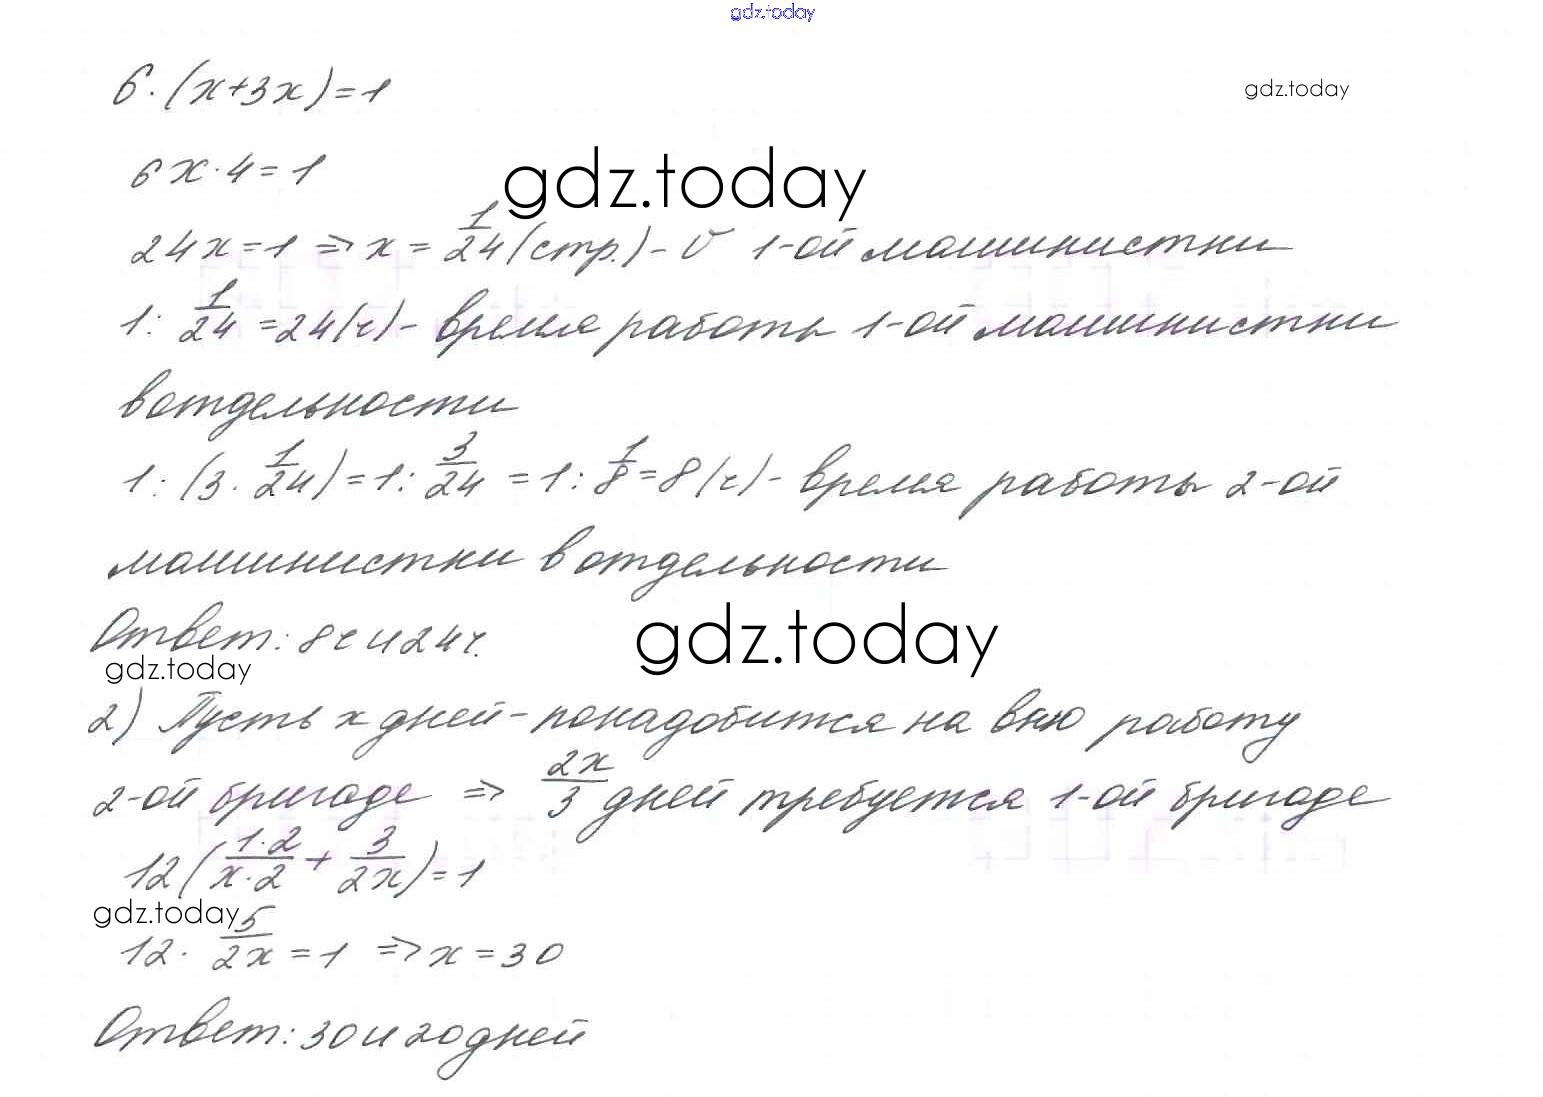 gdz.today
6·(x+3x)=1
gdz.today
6x·4=1
gdz.today
24x=1 ⇒ x = 1/24 (стр.) - V 1-ой машинистки
1 : 1/24 = 24 (ч) - время работы 1-ой машинистки
в отдельности
1 : (3 · 1/24) = 1 : 3/24 = 1 : 1/8 = 8 (ч) - время работы 2-ой
машинистки в отдельности
Ответ: 8ч и 24ч.
gdz.today
gdz.today
2) Пусть x дней - понадобится на всю работу
2-ой бригаде ⇒ 2x/3 дней требуется 1-ой бригаде
12 (1·2/x·2 + 3/2x) = 1
gdz.today
12 · 5/2x = 1 ⇒ x = 30
Ответ: 30 и 20 дней